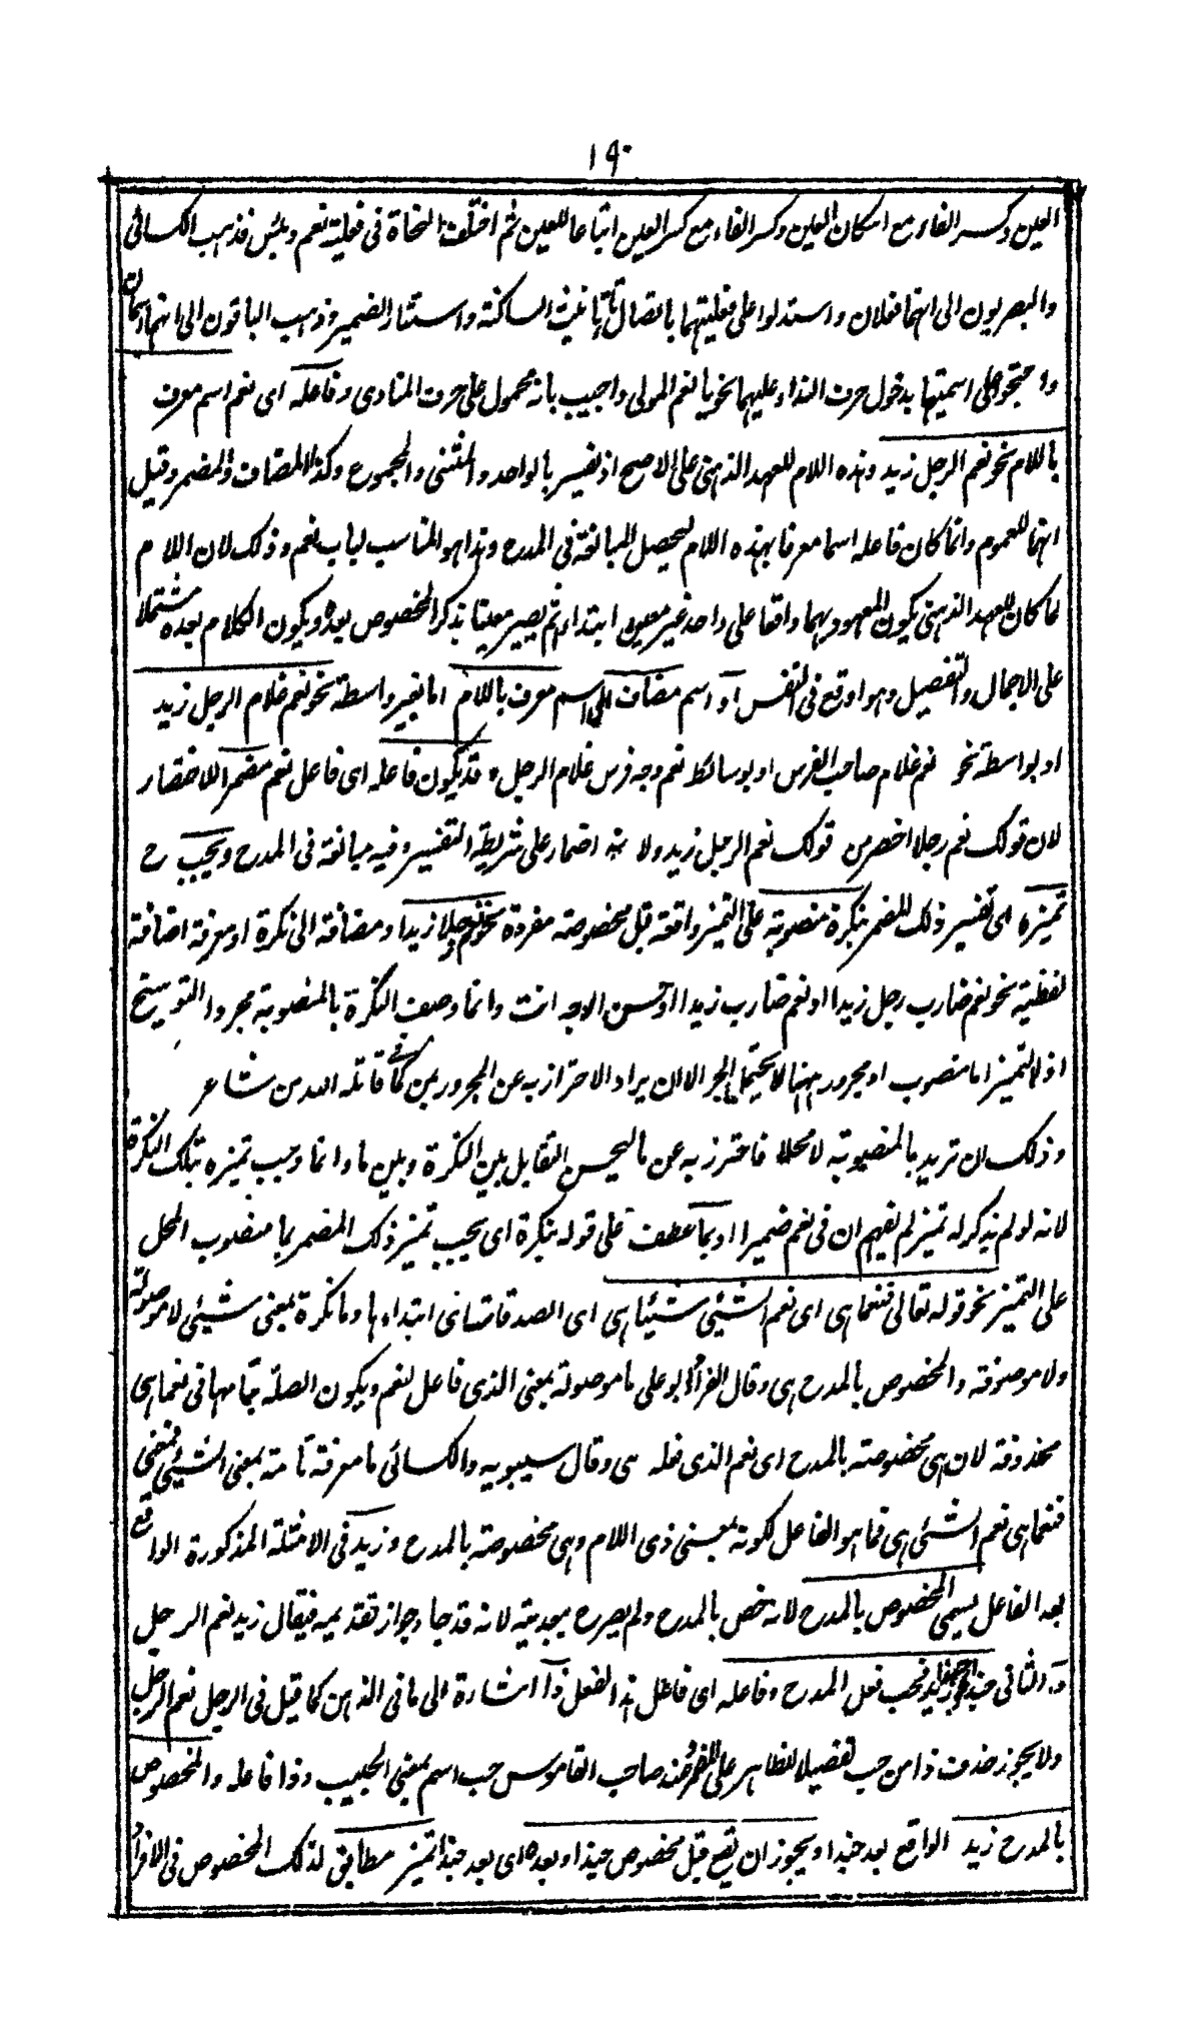 ١٩٠
العين وكسر الفاء مع اسكان العين وكسر الفاء مع كسر العين اتباعا للعين ثم اختلفت النحاة فى فعلية نعم وبئس فذهب الكسائى
والبصريون الى انهما فعلان واستدلوا على فعليتهما باتصال تاء تانيث الساكنة واستتار الضمير وذهب الباقون الى انهما اسمان
واحتجوا على اسميتها بدخول حرف النداء عليهما نحو يا نعم المولى واجيب بانه محمول على حرف المنادى وفاعله اى نعم اسم معرف
باللام نحو نعم الرجل زيد وهذه اللام للعهد الذهنى على الاصح اذ يفسر بالواحد والمثنى والمجموع وكذا المضاف والمضمر وقيل
انها للعموم وانما كان فاعله اسما معرفا بهذه اللام ليحصل المبالغة فى المدح وهذا هو المناسب لباب نعم وذلك لان اللام
لما كان للعهد الذهنى يكون المعهود بهما واقعا على واحد غير معين ابتداء ثم يصير معينا بذكر المخصوص بعده ويكون الكلام بعده مشتملا
على الاجمال والتفصيل وهو اوقع فى النفس او اسم مضاف الى اسم معرف باللام اما بغير واسطة نحو نعم غلام الرجل زيد
او بواسطة نحو نعم غلام صاحب الفرس او بوسائط نعم وجه فرس غلام الرجل وقد يكون فاعله اى فاعل نعم مضمرا للاختصار
لان قولك نعم رجلا اخصر من قولك نعم الرجل زيد ولانه اضمار على شريطة التفسير وفيه مبالغة فى المدح ويجب ح
تميزه اى تفسير ذلك المضمر بنكرة منصوبة على التميز واقعة قبل مخصوصة مفردة نحو نعم رجلا زيدا ومضافة الى نكرة او معرفة اضافة
لفظية نحو نعم ضارب رجل زيدا او نعم ضارب زيدا او حسن الوجه انت وانما وصف النكرة بالمنصوبة مجردا التوسيح
اذ التميز اما منصوب او مجرور ههنا لا يحتمل الجر الا ان يراد الاحتراز به عن المجرور بمن كما فى قاتله الله من شاعر
وذلك ان تريد بالمنصوبة لا محلا فاحترز به عن ما ليحسن التقابل بين النكرة وبين ما وانما وجب تميزه بتلك النكرة
لانه لو لم يذكر له تميز لم يفهم ان فى نعم ضميرا او بما عطف على قوله بنكرة اى يجب تميز ذلك المضمر بما منصوب المحل
على التميز نحو قوله تعالى فنعما هى اى نعم الشئى شيئا هى اى الصدقات اى ابتداءها وما نكرة بمعنى شيئى لا موصولة
ولا موصوفة والمخصوص بالمدح هى وقال الفراء وابو على ما موصولة بمعنى الذى فاعل لنعم ويكون الصلة بتمامها فى نعما هى
محذوفة لان هى مخصوصة بالمدح اى نعم الذى فعله هى وقال سيبويه والكسائى ما معرفة تامة بمعنى الشيئى فمعنى
فنعما هى نعم الشئى هى فما هو الفاعل لكونه بمعنى ذى اللام وهى مخصوصة بالمدح وزيد فى الامثلة المذكورة الواقع
بعد الفاعل يسمى المخصوص بالمدح لانه خص بالمدح ولم يصرح ببعدية لانه قد جاء وجواز تقديمه فيقال زيد نعم الرجل
و الثانى حبذا فحب فعل المدح وفاعله اى فاعل هذا الفعل ذا اشارة الى ما فى الذهن كما قيل فى الرجل نعم الرجل
ولا يجوز حذف ذا من حب تفضيلا للظاهر على المضمر وعند صاحب القاموس حب اسم بمعنى الحبيب وذا فاعله والمخصوص
بالمدح زيد الواقع بعد حبذا ويجوز ان يقع قبل مخصوص حبذا وبعده اى بعد حبذا تميز مطابق لذلك المخصوص فى الافراد